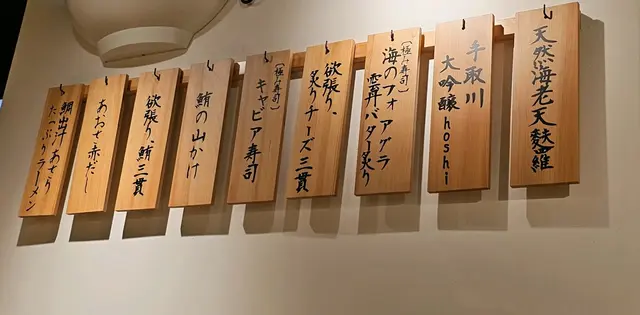 天然海老天麩羅
手取川
大吟醸hoshi
〔極み寿司〕
海のフォアグラ
雲丹バター炙り
欲張り、
炙りチーズ三貫
〔極み寿司〕
キャビア寿司
鮪の山かけ
欲張り、鮪三貫
あおせ赤だし
鯛出汁あさり
たっぷりラーメン